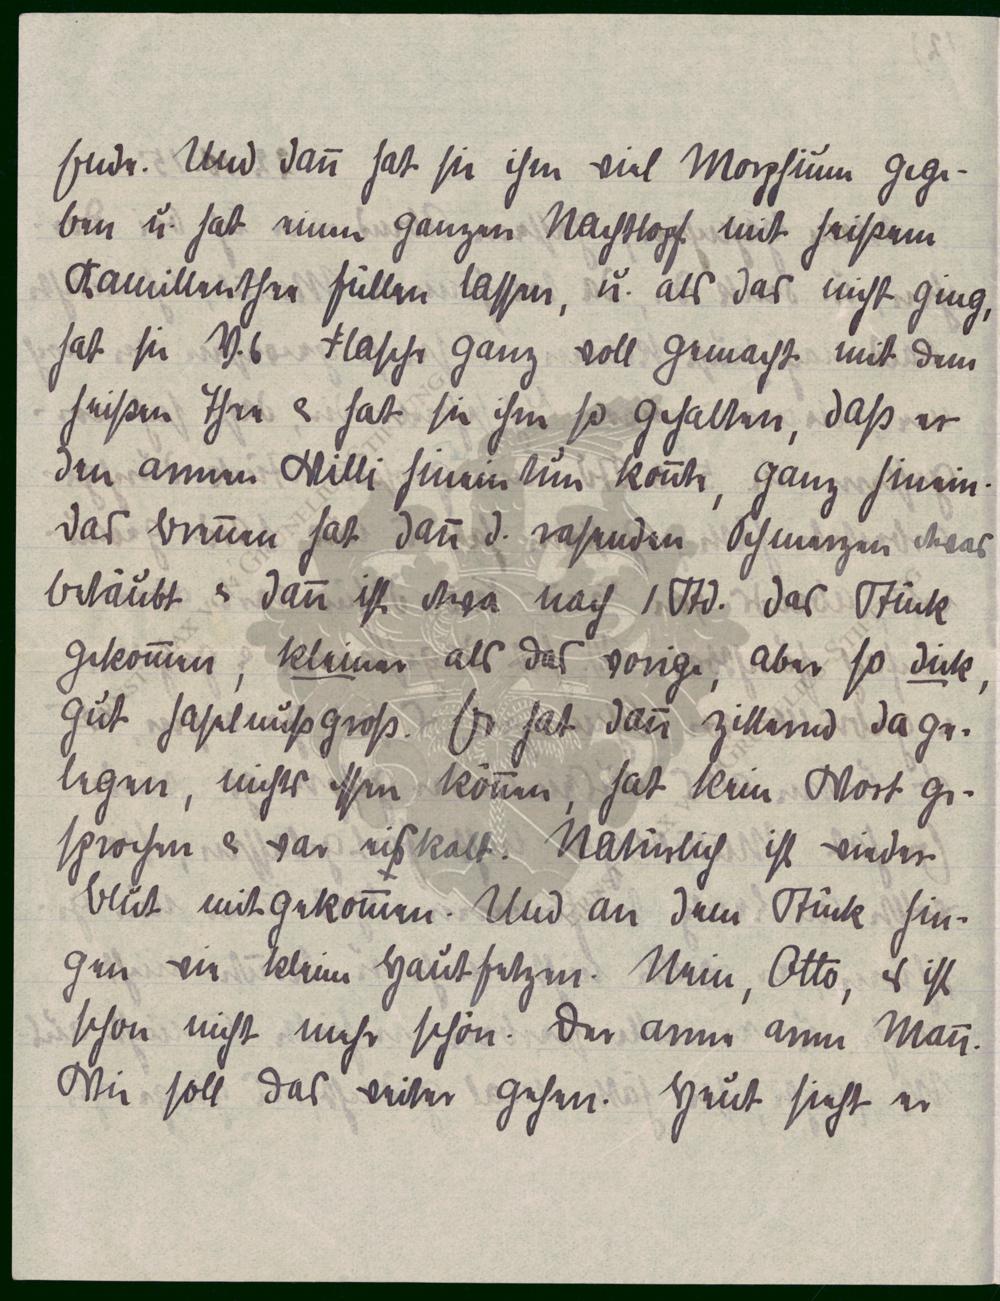 Ende. Und dan̄ hat sie ihm viel Morphium gege-
ben u. hat einen ganzen Nachttopf mit heißem
Kamillenthee füllen lassen, u. als das nicht ging,
hat sie V.s Flasche ganz voll gemacht mit dem
heißen Thee & hat sie ihm so gehalten, daß er
den armen Willi hinein tun kon̄te, ganz hinein.
Das Bren̄en hat dan̄ d. rasenden Schmerzen etwas
betäubt & dan̄ ist etwa nach 1 Std. das Stück
gekom̄en, kleiner als das vorige, aber so dick,
gut haselnußgroß. Er hat dan̄ zitternd da ge-
legen, nichts essen kön̄en, hat kein Wort ge-
sprochen & war eiskalt. Natürlich ist wieder
Blut mitgekom̄en. Und an dem Stück hin-
gen wie kleine Hautfetzen. Nein, Otto, es ist
schon nicht mehr schön. Der arme arme Man̄.
Wie soll das weiter gehen. Heut sieht er